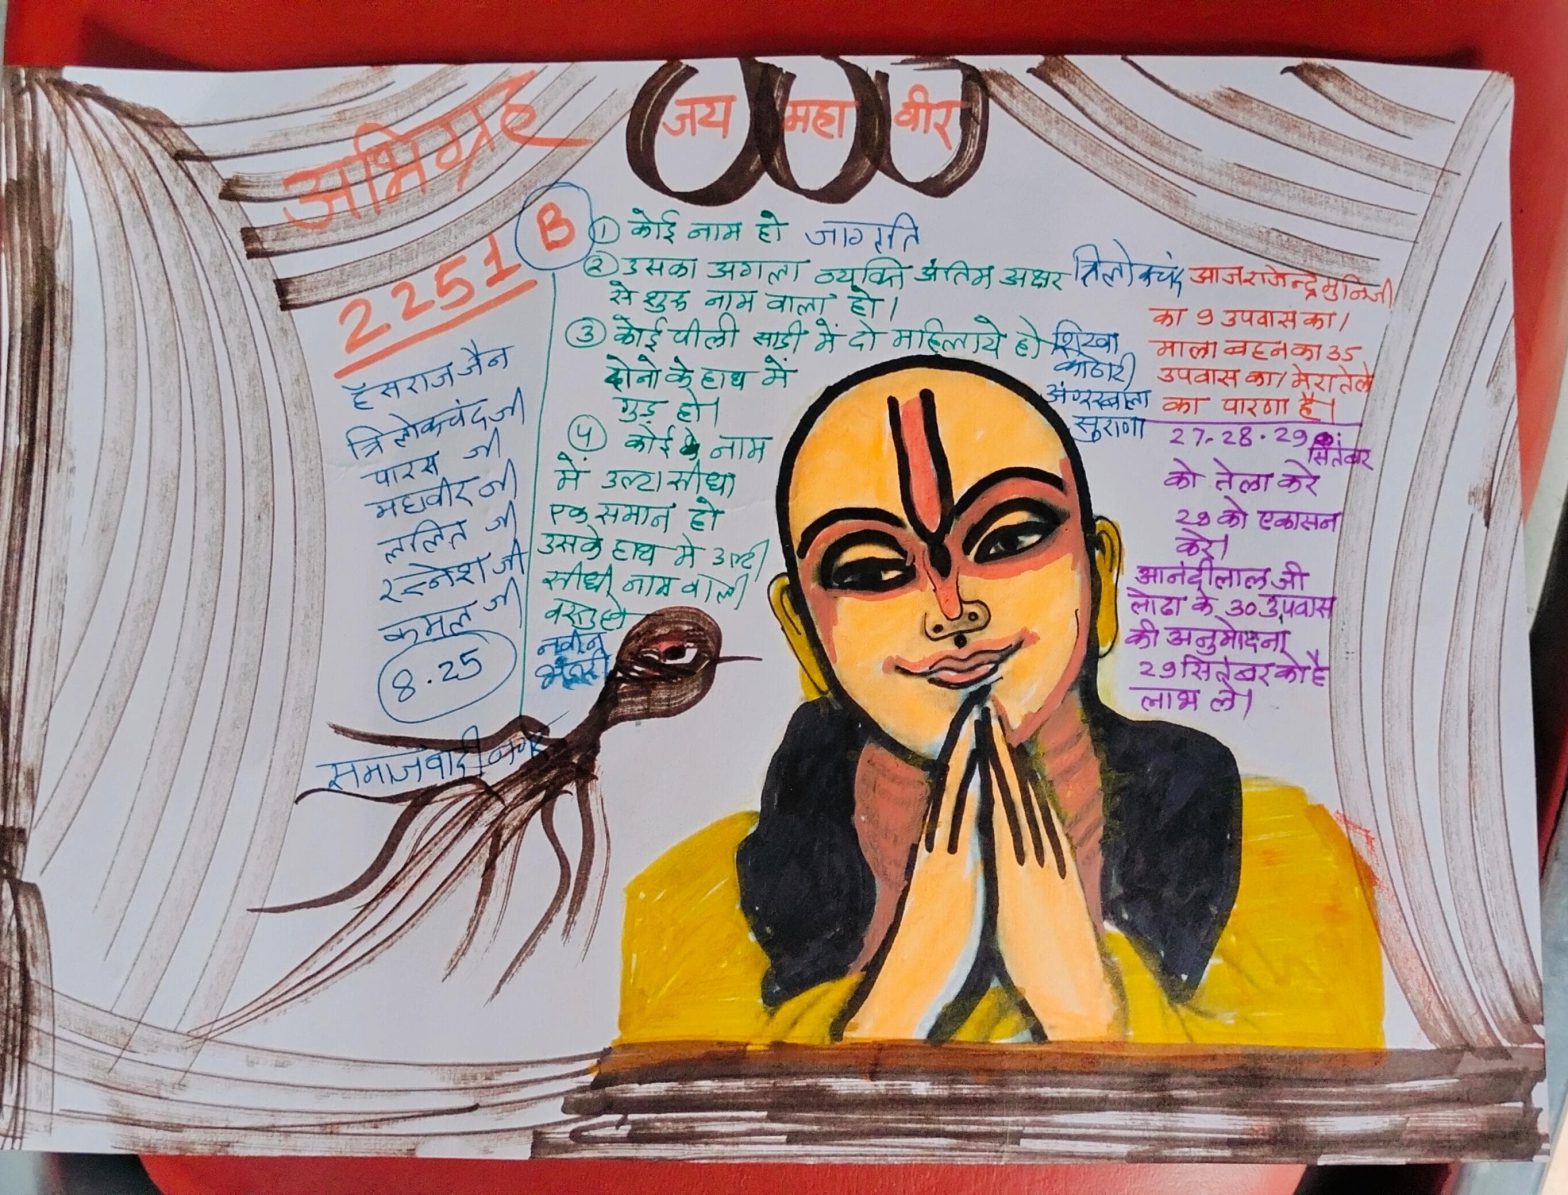 जय महा वीर
अभिग्रह
2251 B
हंसराज जैन
त्रिलोकचंद जी
पारस जी
महावीर जी
ललित जी
रत्नेश जी
कमल जी
8.25
समाजवादी
① कोई नाम हो जागृति
② उसका अगला व्यक्ति अंतिम अक्षर त्रिलोकचंद
से शुरू नाम वाला हो।
③ कोई पीली साड़ी में दो महिलाये हो शिखा
दोनो के हाथ में कोठारी
गुड़ हो। अंगरखा
सुराणा
④ कोई नाम
मे उल्टा सीधा
एक समान हो
उसके हाथ मे उल्टी
सीधी नाम वाली
वस्तु हो
नवीन
आज राजेन्द्र मुनिजी
का 9 उपवास का।
माला बहन का 35
उपवास का। मेरा तेले
का पारणा है।
27-28-29 सितंबर
को तेला करे
29 को एकासन
करे।
आनंदीलाल जी
लोढा के 30 उपवास
की अनुमोदना
29 सितंबर को है
लाभ ले।